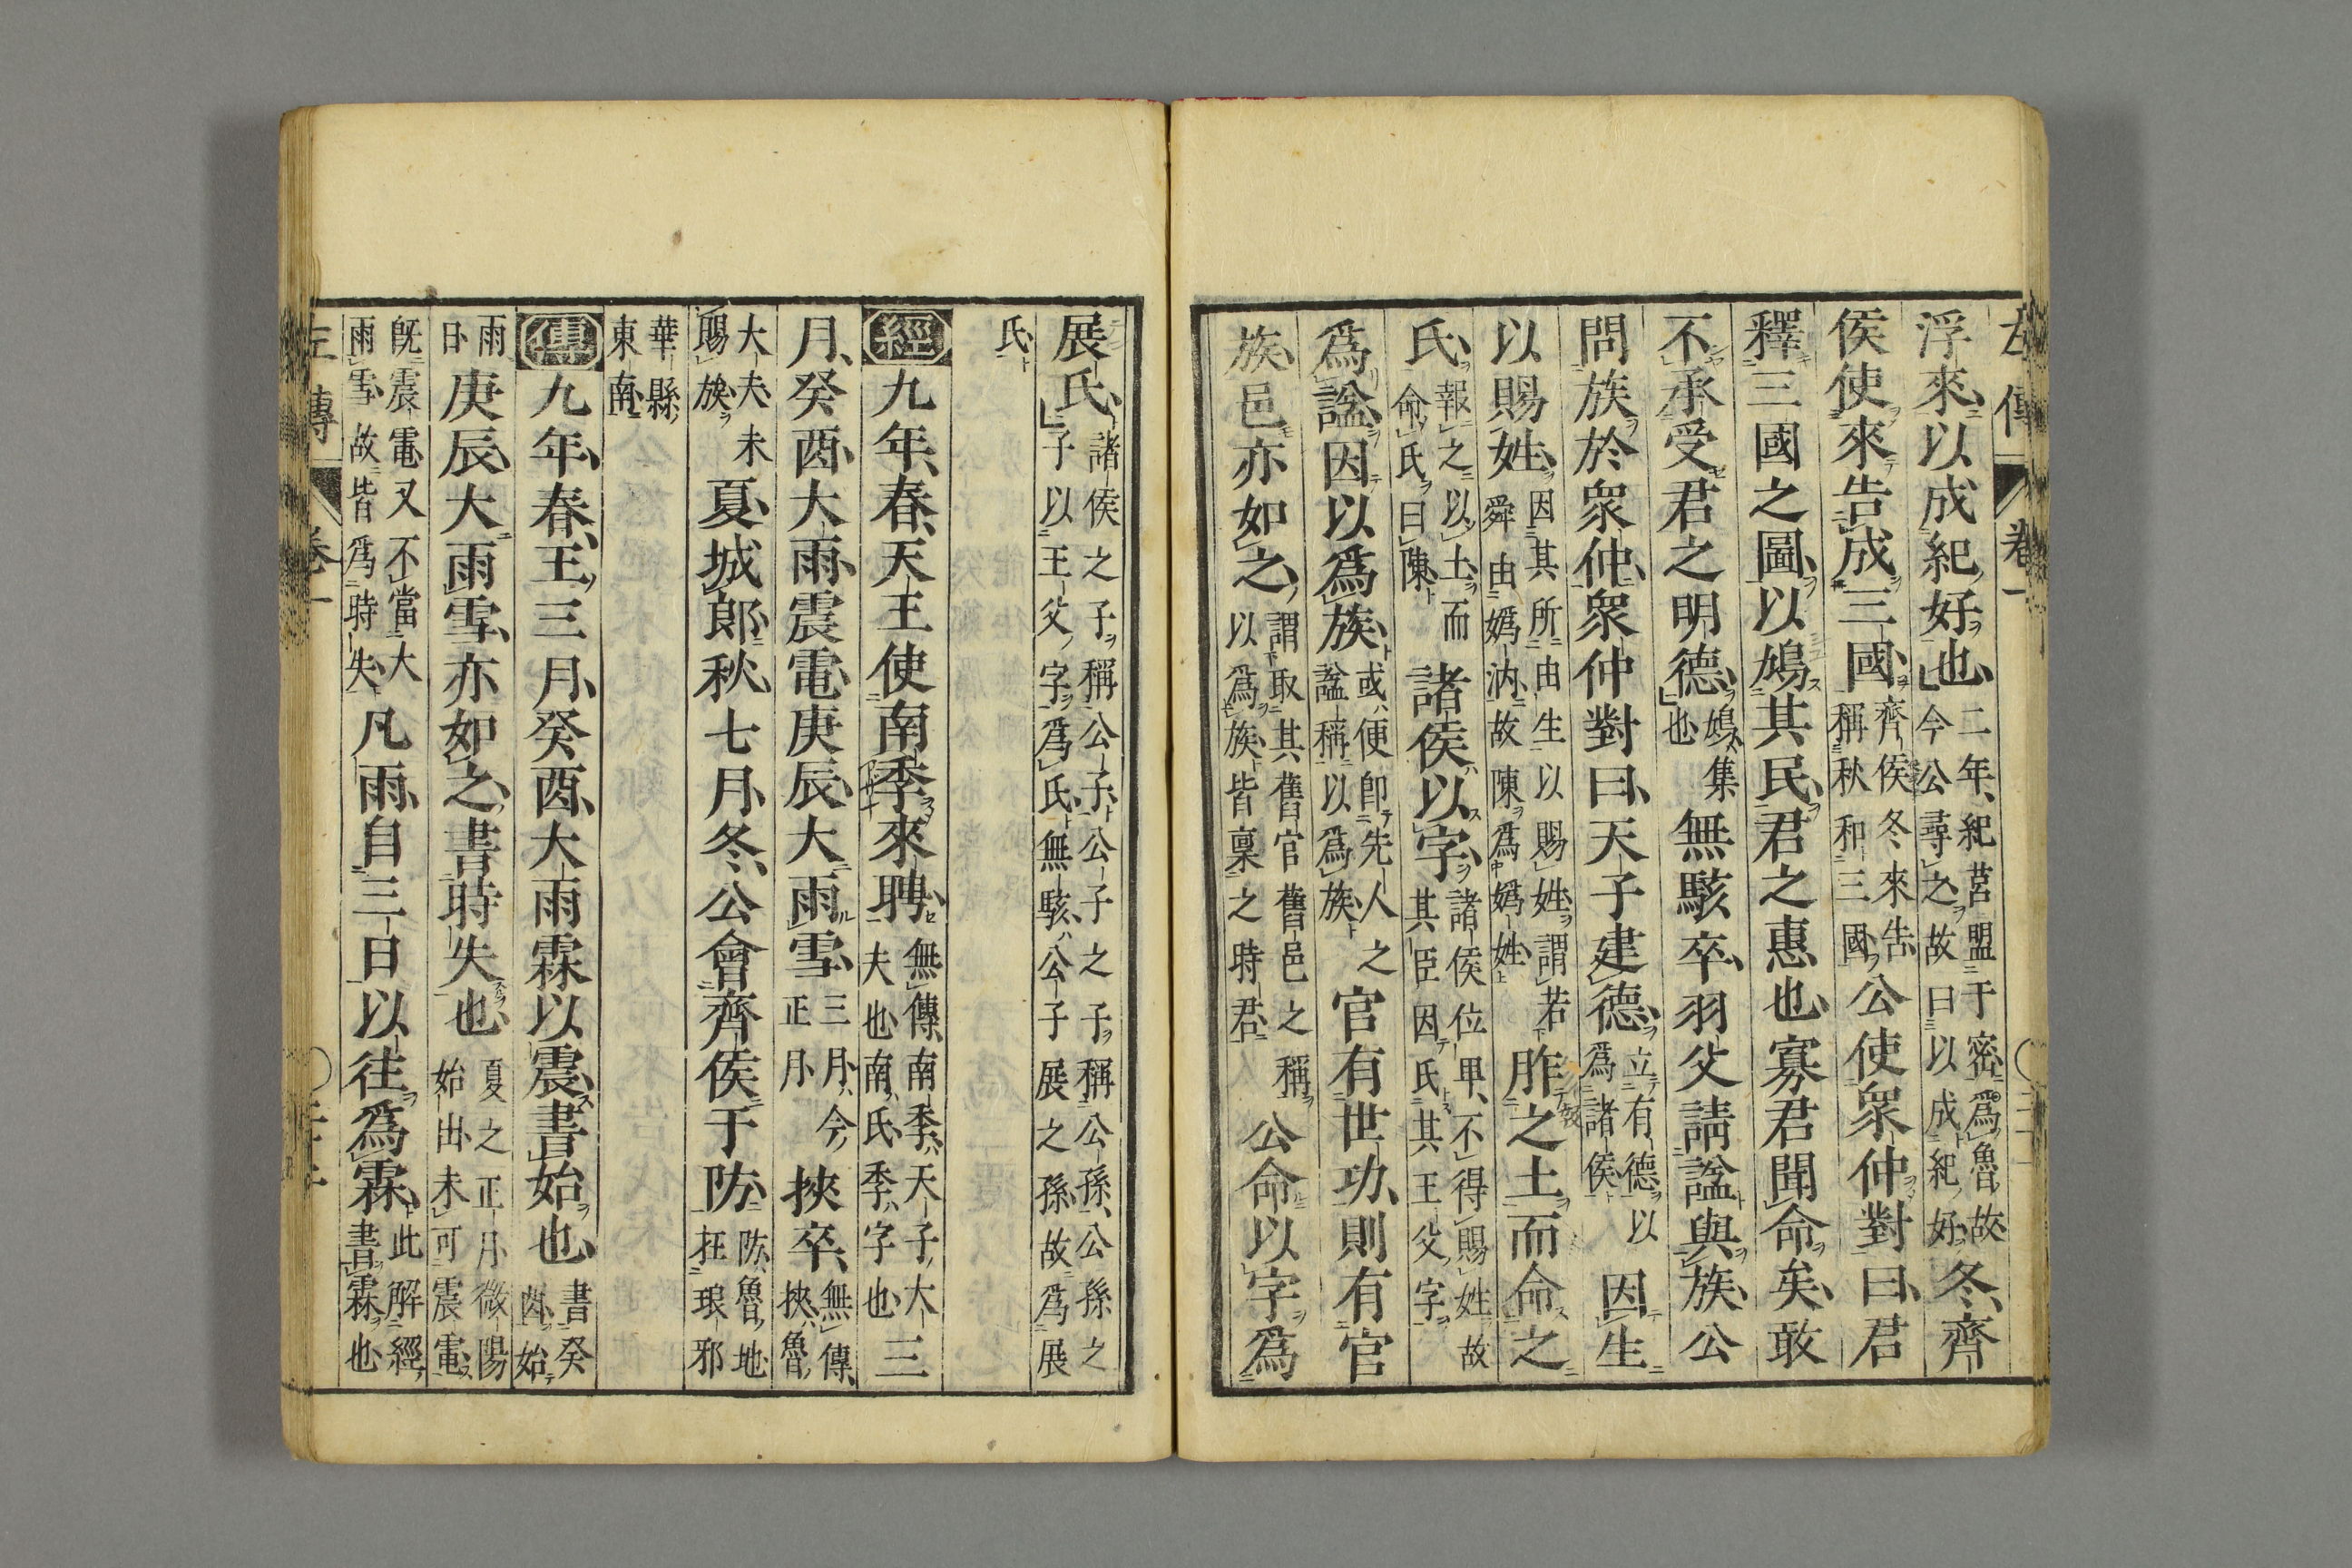 左傳 卷一
浮來、以成紀好也、二年、紀莒盟于密、爲魯、故今公尋之、故曰以成紀好、冬、齊
侯使來告成三國、齊侯冬來告、稱秋和三國、公使衆仲對曰、君
釋三國之圖、以鳩其民、君之惠也、寡君聞命矣、敢
不承受君之明德、鳩、集也 無駭卒、羽父請謚與族、公
問族於衆仲、衆仲對曰、天子建德、立有德以爲諸侯 因生
以賜姓、因其所由生以賜姓、謂若舜由嬀汭、故陳爲嬀姓 胙之土而命之
氏、報之以土而命氏曰陳、諸侯以字、諸侯位卑、不得賜姓、故其臣因氏其王父字
爲謚、因以爲族、或便卽先人之謚稱以爲族、官有世功、則有官
族、邑亦如之、謂取其舊官舊邑之稱以爲族、皆稟之時君、公命以字爲
展氏、諸侯之子稱公子、公子之子稱公孫、公孫之子以王父字爲氏、無駭公子展之孫、故爲展
氏、
經 九年、春、天王使南季來聘、無傳、南季、天子大夫也、南、氏、季、字也、三
月、癸酉、大雨、震電、庚辰、大雨雪、三月、今正月、挾卒、無傳、挾、魯
大夫、未賜族、夏、城郎、秋、七月、冬、公會齊侯于防、防、魯地、在琅邪
華縣東南
傳 九年、春、王三月、癸酉、大雨霖以震、書始也、書癸酉、始
雨日 庚辰、大雨雪、亦如之、書時失也、夏之正月、微陽始出、未可震電、
旣震電、又不當大雨雪、故皆爲時失、凡雨、自三日以往爲霖、此解經書霖也
左傳 卷一